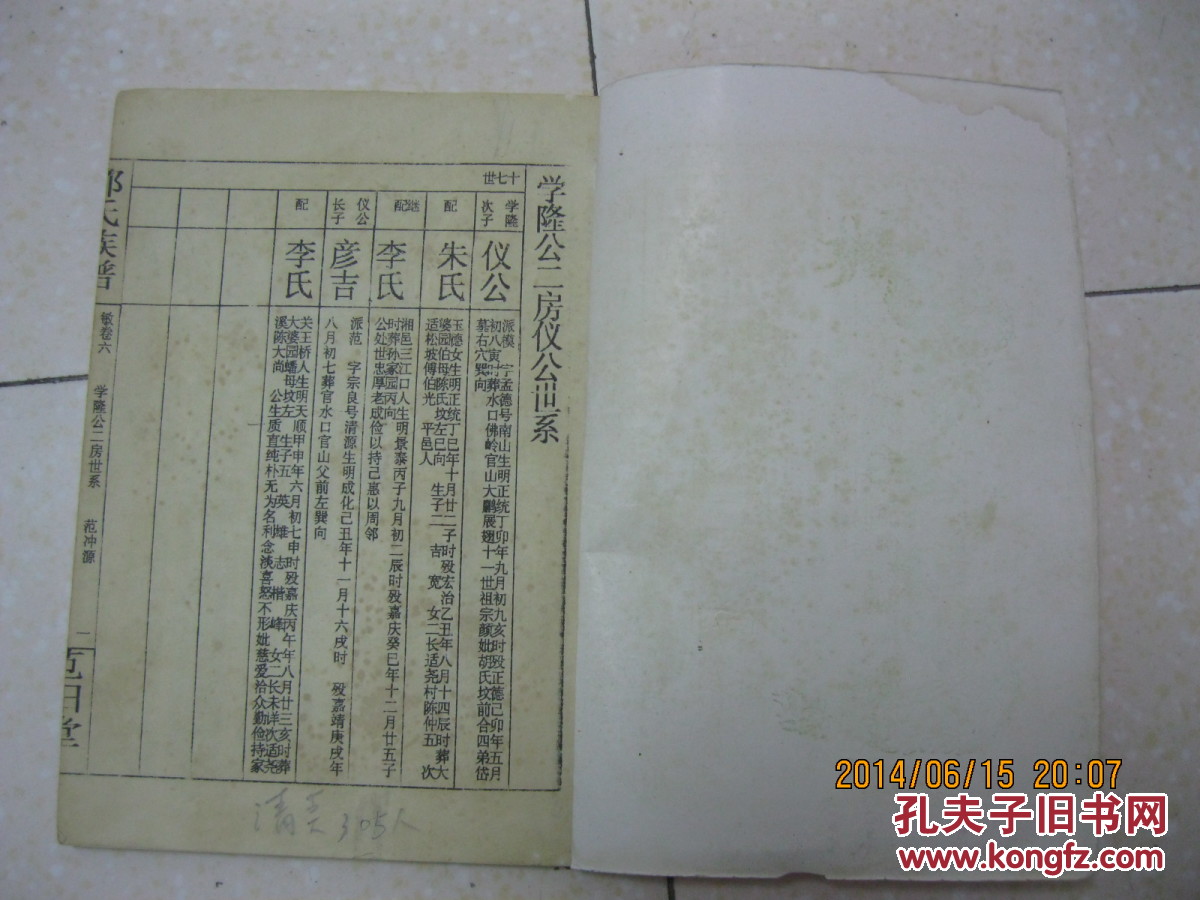 学隆公二房仪公世系
十七世
学隆次子
仪公
派漠 字孟德号南山生明正统丁卯年九月初九亥时殁正德己卯年五月
初八寅时葬水口佛岭官山大鹏展翅十一世祖宗颜妣胡氏坟前合四弟岱
墓右穴巽向
配
朱氏
玉德女生明正统丁巳年十月廿二子时殁宏治乙丑年八月十四辰时葬大
婆园伯母陈氏坟左巳向 生子二 吉 宽 女二长适尧村陈仲五 次
适松坡傅伯光 平邑人
继配
李氏
湘邑三江口人生明景泰丙子九月初二辰时殁嘉庆癸巳年十二月廿五子
时葬孙家园丙向
公处世忠厚老成俭以持己惠以周邻
仪公长子
彦吉
派范 字宗良号清源生明成化己丑年十一月十六戌时 殁嘉靖庚戌年
八月初七葬官水口官山父前左巽向
配
李氏
关王桥人生明天顺甲申年六月初七申时殁嘉庆丙午年八月廿三亥时葬
大婆园蟠母坟左 生子五 英 雄 志 楷 峰 女二长未详次适尧
溪陈大尚 公生质直纯朴无为名利念淡喜怒不形妣慈爱洽众勤俭持家
氏族谱
敏卷六
学隆公二房世系
范冲源
一
305人
2014/06/15 20:07
孔夫子旧书网
www.kongfz.com